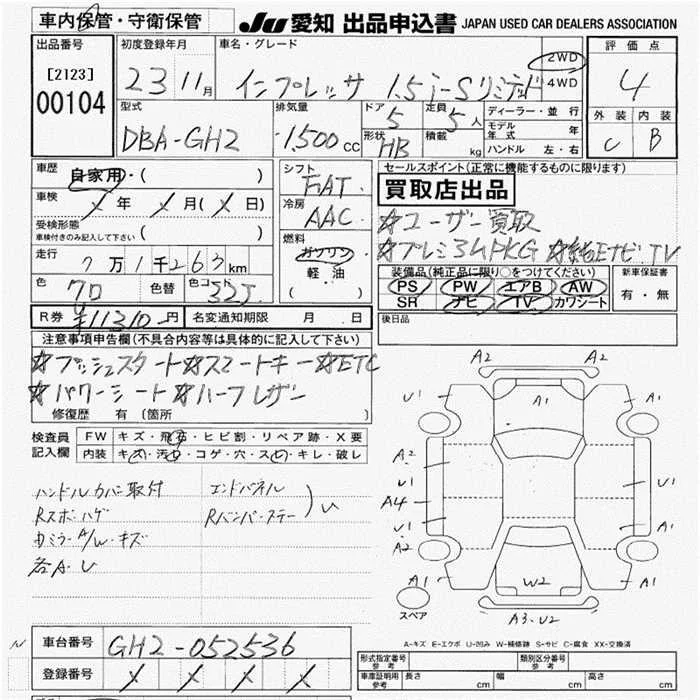 車内保管・守衛保管 JU 愛知 出品申込書 JAPAN USED CAR DEALERS ASSOCIATION
出品番号 初度登録年月 車名・グレード 2WD 評価点
[2123] 23 11月 インプレッサ 1.5 i-Sリミテッド 4WD 4
00104 型式 排気量 ドア 定員 ディーラー・並行 外装 内装
DBA-GH2 1,500cc 5 5人 モデル年式 年 C B
形状 HB 積載 kg ハンドル 左・右
車歴 自家用・( ) シフト FAT セールスポイント(正常に機能するものに限ります)
車検 年 月( 日) 冷房 AAC 買取店出品
受検形態 ☆ユーザー買取
車検付きのみ記入して下さい ( ) 燃料 ガソリン ☆プレミアムPKG ☆純正ナビTV
走行 7万1千263km 軽油 装備品(純正品に限り○をつけてください) 新車保証書
色 クロ 色替 色コード 32J ・( ) PS PW エアB AW 有・無
SR ナビ TV カワシート
R券 ¥11310円 名変通知期限 月 日 後日品
注意事項申告欄(不具合内容等は具体的に記入して下さい)
☆プッシュスタート☆スマートキー☆ETC
☆パワーシート☆ハーフレザー
修復歴 有 〔箇所 〕
検査員 FW キズ・飛石・ヒビ割・リペア跡・X要
記入欄 内装 キズ・汚れ・コゲ・穴・スレ・キレ・破レ
ハンドルカバー取付 エンドパネル
Rスポハゲ Rバンパーステー U
カミラーA/W・キズ
各A・U
A2 A2
U1 A1 A1
A2
U1 U1
A4
U1 A1
A2
A1 W2 A1
スペア A3、U2
A-キズ E-エクボ U-凹み W-補修跡 S-サビ C-腐食 XX-交換済
N 車台番号 GH2-052536
形式指定番号 参考 類別区分番号 参考
登録番号 車庫証明用 参考 長さ cm 幅 cm 高さ cm